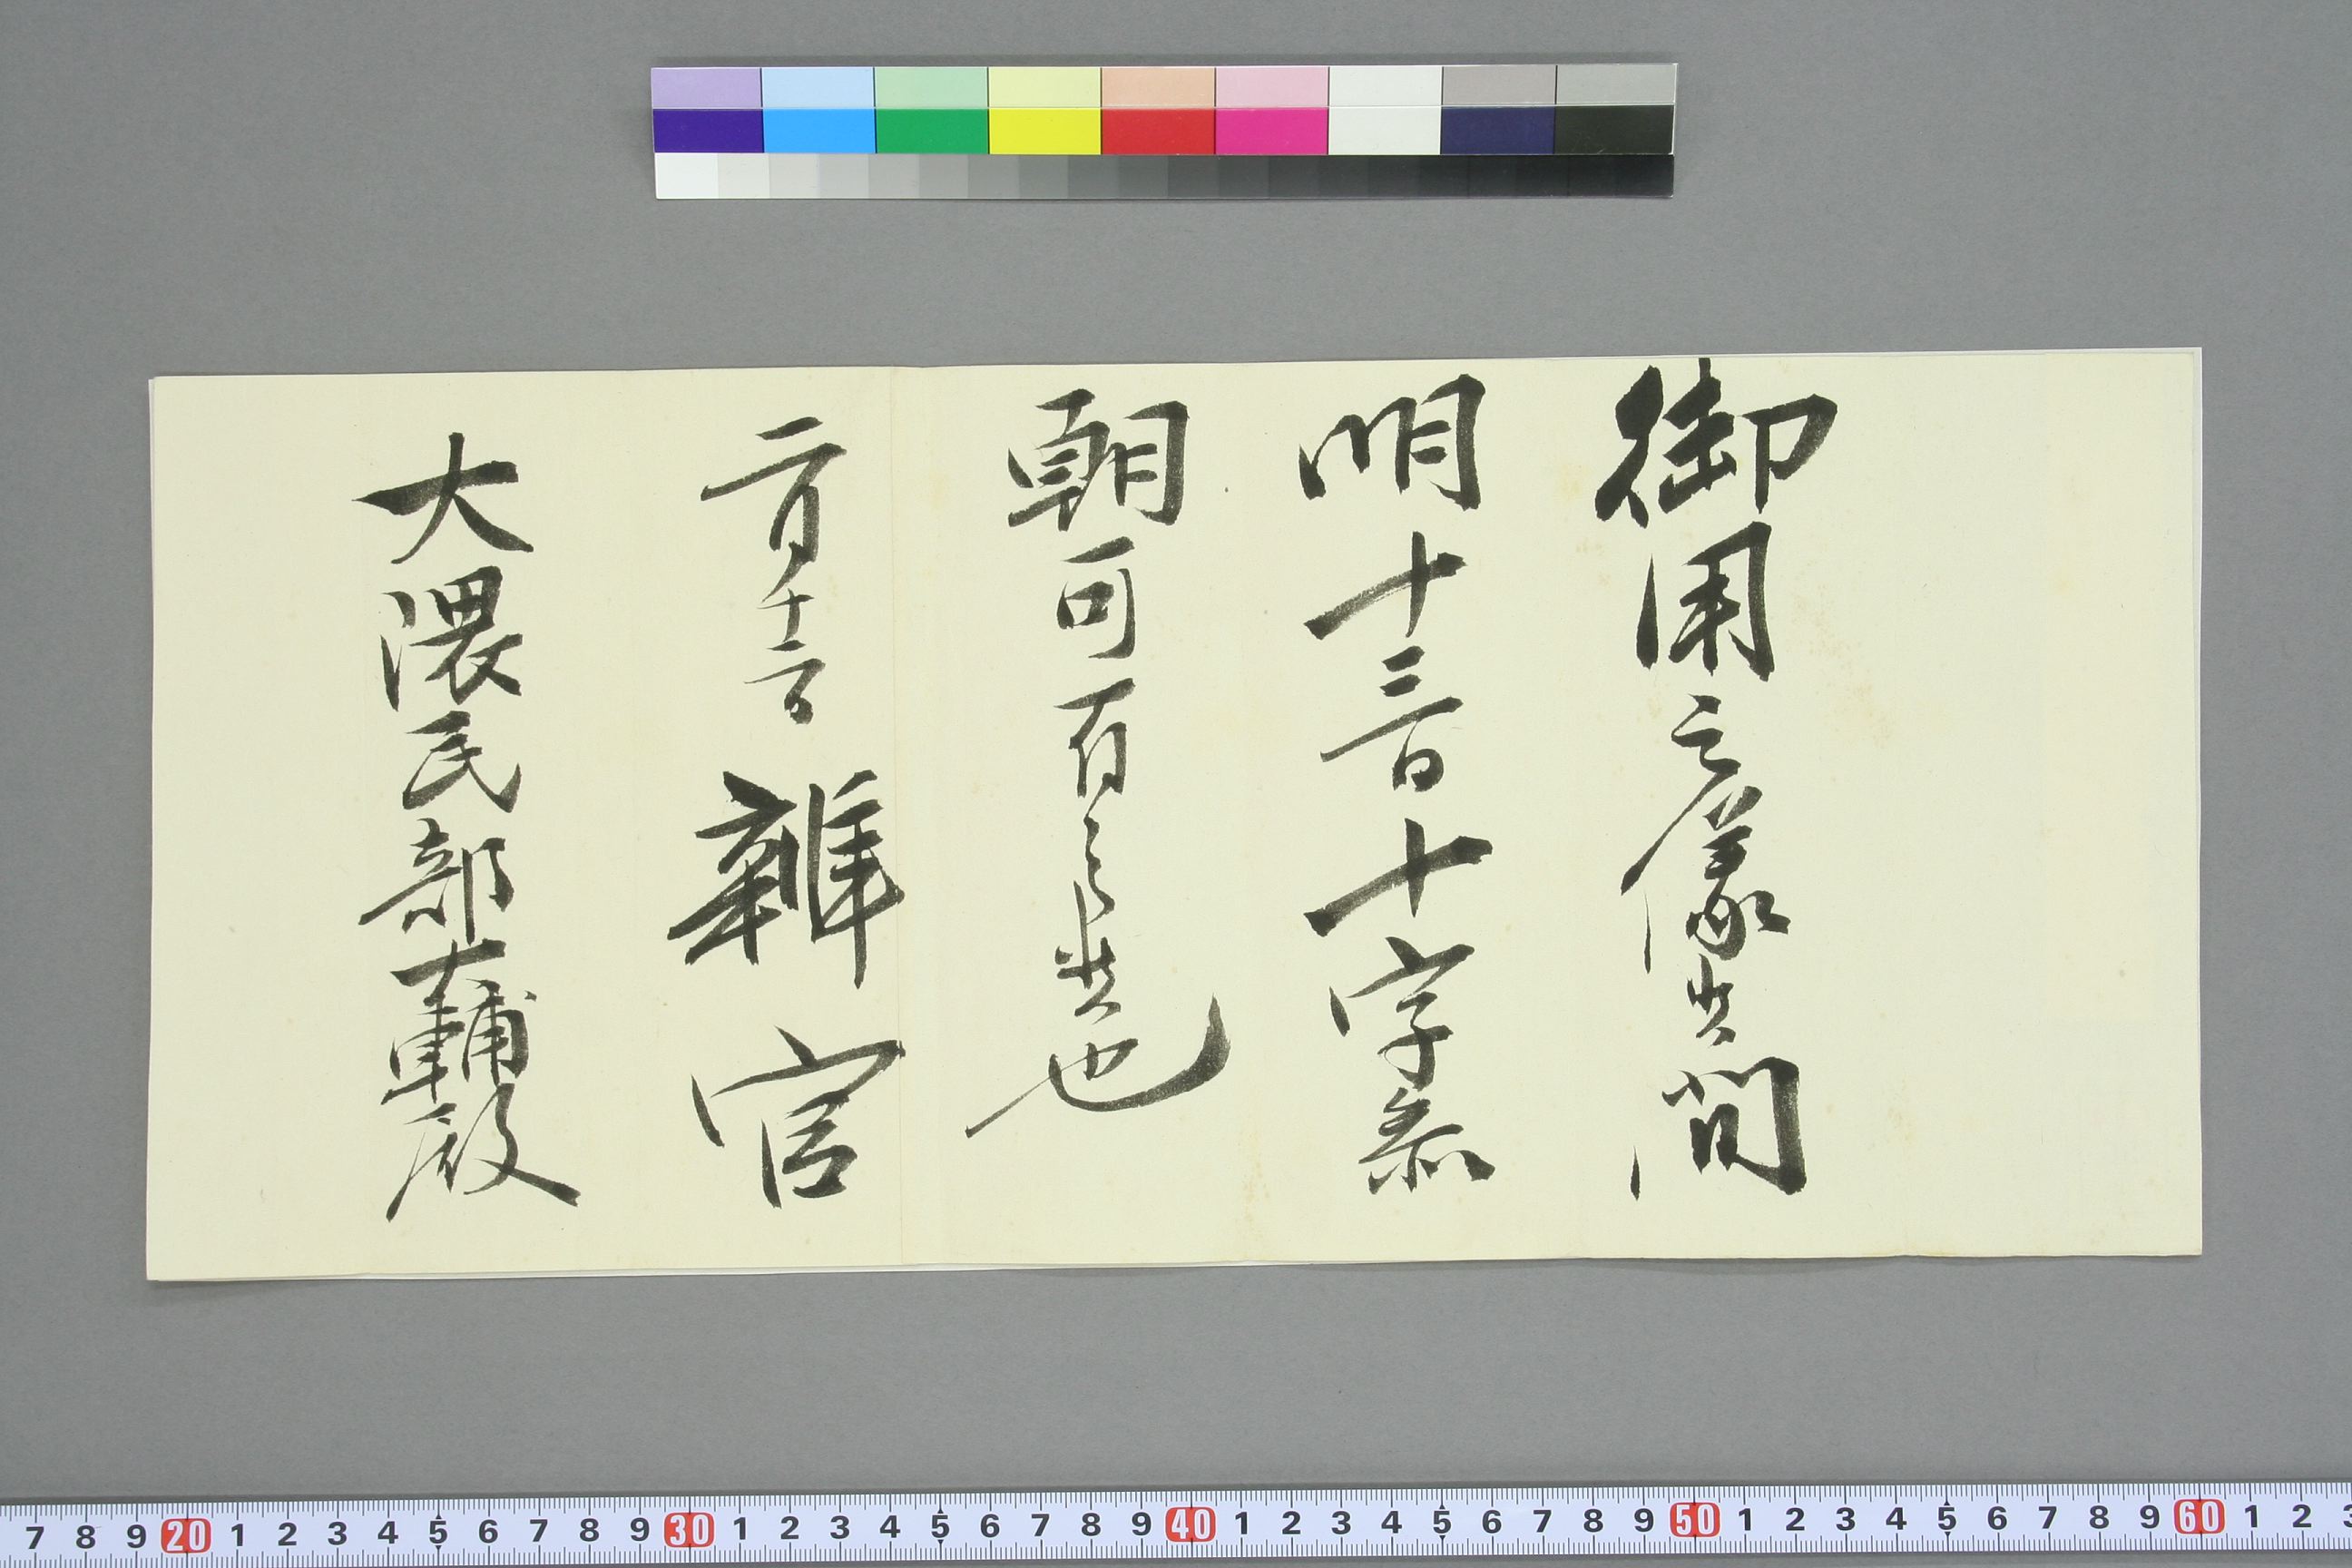 御用之儀候間
明十三日十字参
朝可有之候也
二月十二日 辨官
大隈民部大輔殿
7 8 9 20 1 2 3 4 5 6 7 8 9 30 1 2 3 4 5 6 7 8 9 40 1 2 3 4 5 6 7 8 9 50 1 2 3 4 5 6 7 8 9 60 1 2 3